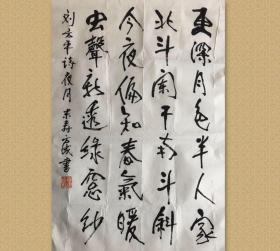 更深月色半人家
北斗闌干南斗斜
今夜偏知春氣暖
虫聲新透綠窓紗
刘方平诗夜月